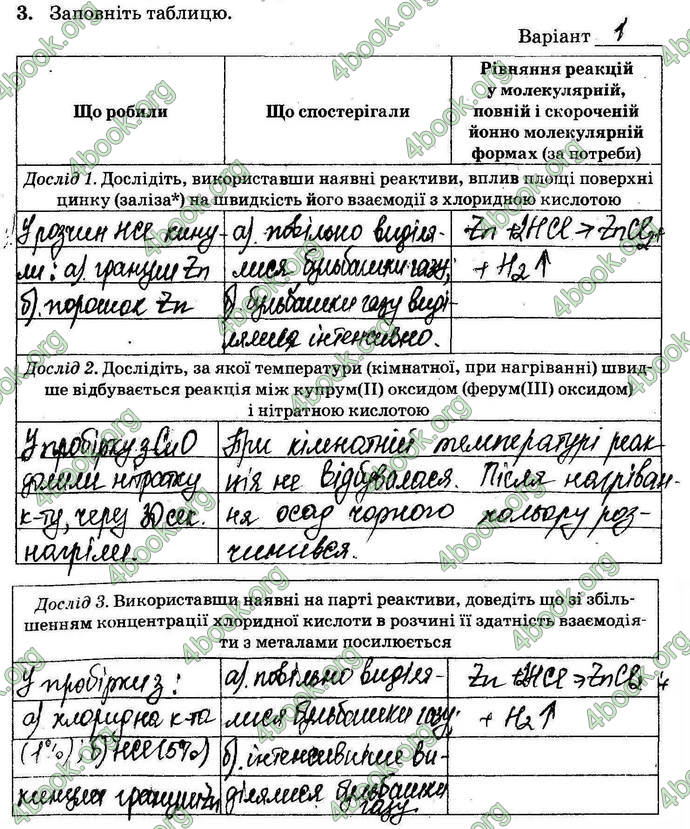 3. Заповніть таблицю.
Варіант 1
Що робили
Що спостерігали
Рівняння реакцій
у молекулярній,
повній і скороченій
йонно молекулярній
формах (за потреби)
Дослід 1. Дослідіть, використавши наявні реактиви, вплив площі поверхні
цинку (заліза*) на швидкість його взаємодії з хлоридною кислотою
У розчин HCl кину-
ли: а). гранули Zn
б). порошок Zn
а). повільно виділя-
лися бульбашки газу;
б). бульбашки газу виді-
лялися інтенсивно.
Zn + 2HCl → ZnCl2 +
+ H2↑
Дослід 2. Дослідіть, за якої температури (кімнатної, при нагріванні) швид-
ше відбувається реакція між купрум(ІІ) оксидом (ферум(ІІІ) оксидом)
і нітратною кислотою
У пробірку з CuO
долили нітратну
к-ту, через 30 сек.
нагріли.
При кімнатній температурі реак-
ція не відбувалася. Після нагріван-
ня осад чорного кольору роз-
чинився.
Дослід 3. Використавши наявні на парті реактиви, доведіть що зі збіль-
шенням концентрації хлоридної кислоти в розчині її здатність взаємодія-
ти з металами посилюється
У пробірки з:
а) хлоридна к-та
(1%), б) HCl (5%)
кинули гранули Zn
а). повільно виділя-
лися бульбашки газу;
б). інтенсивніше ви-
ділялися бульбашки
газу
Zn + 2HCl → ZnCl2 +
+ H2↑
4book.org